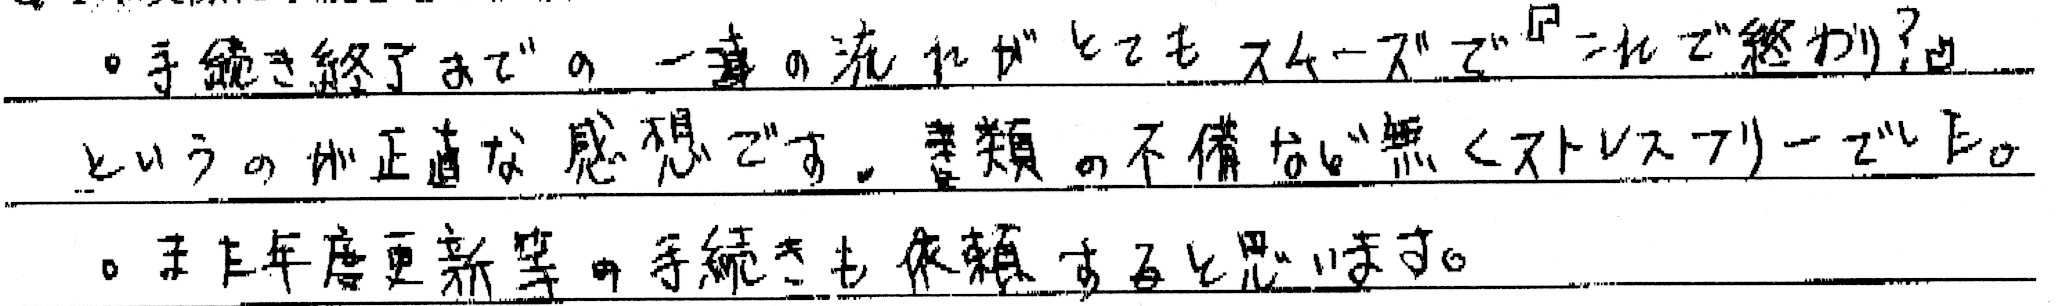 。手続き終了までの一連の流れがとてもスムーズで『これで終わり?』
というのが正直な感想です。書類の不備など無くストレスフリーでした。
。また年度更新等の手続きも依頼すると思います。